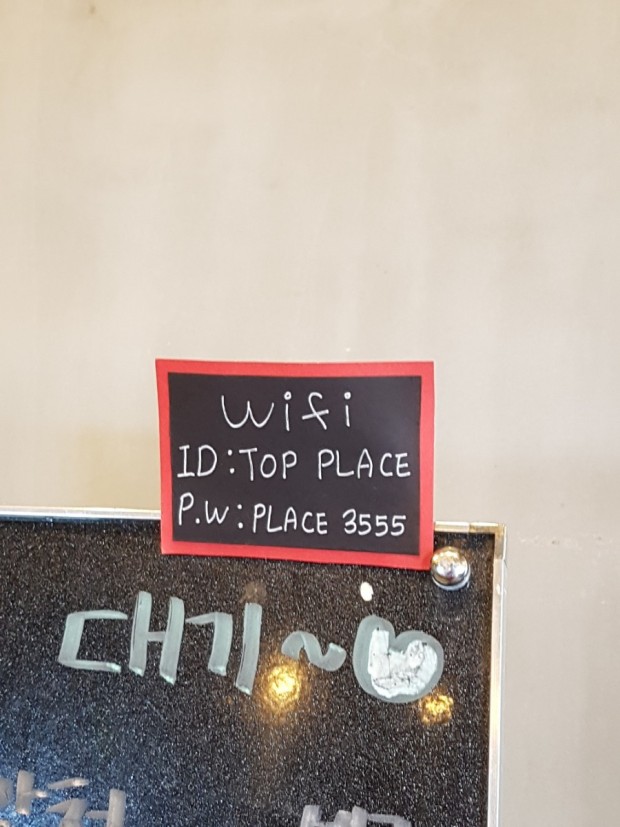 wifi
ID:TOP PLACE
P.W:PLACE 3555
대기~